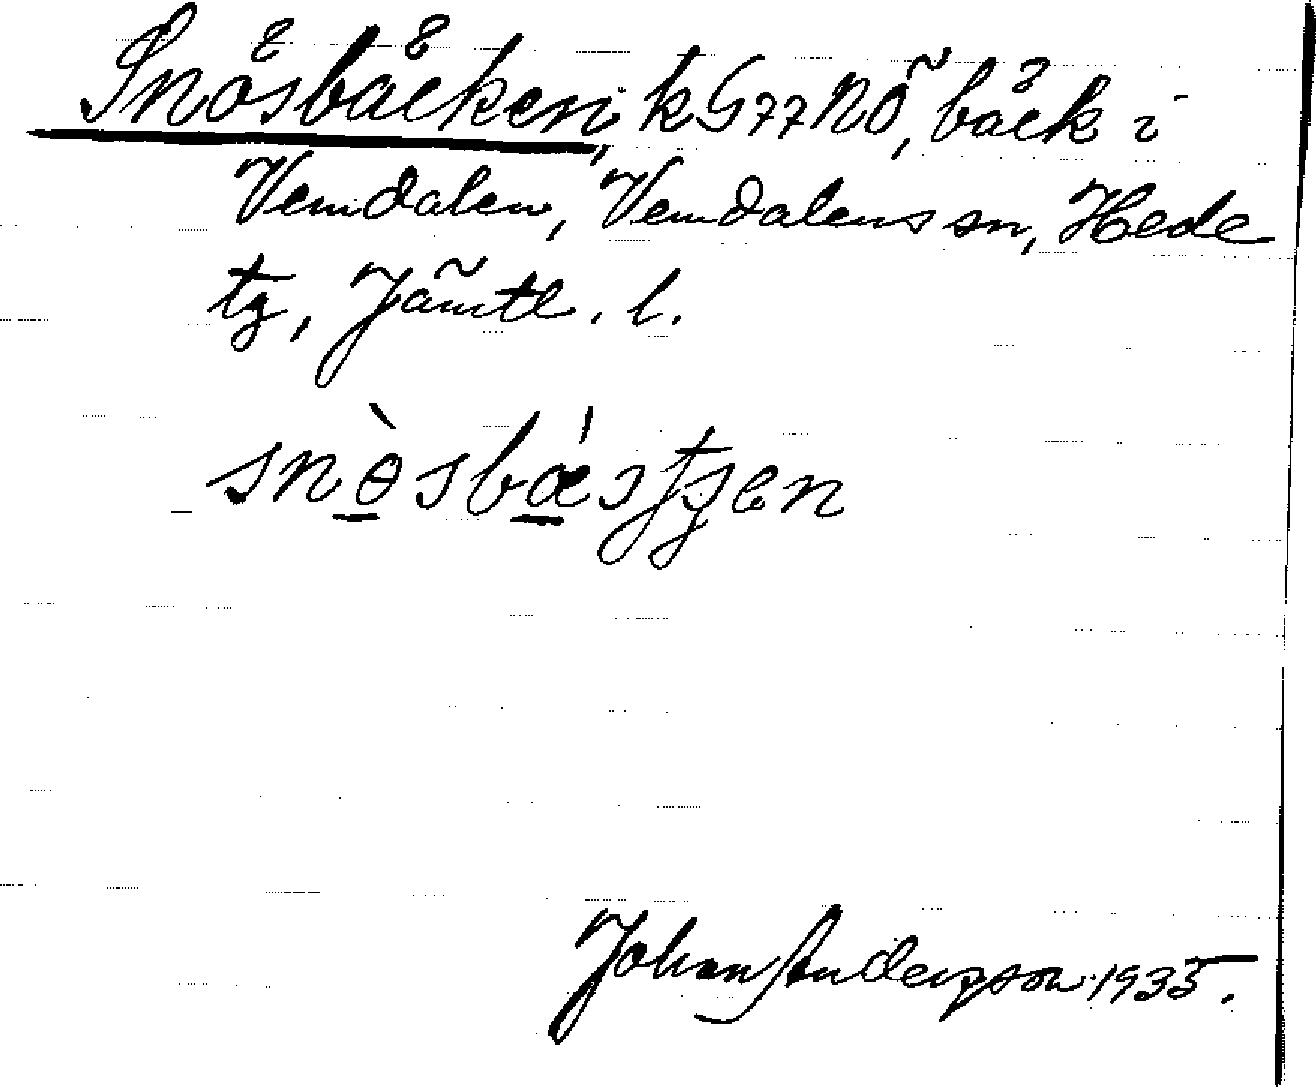 Snåsbäcken, k G77NÖ, bäck i
Vemdalen, Vemdalens sn, Hede
tg, Jämtl. l.
Johan Anderson 1935.